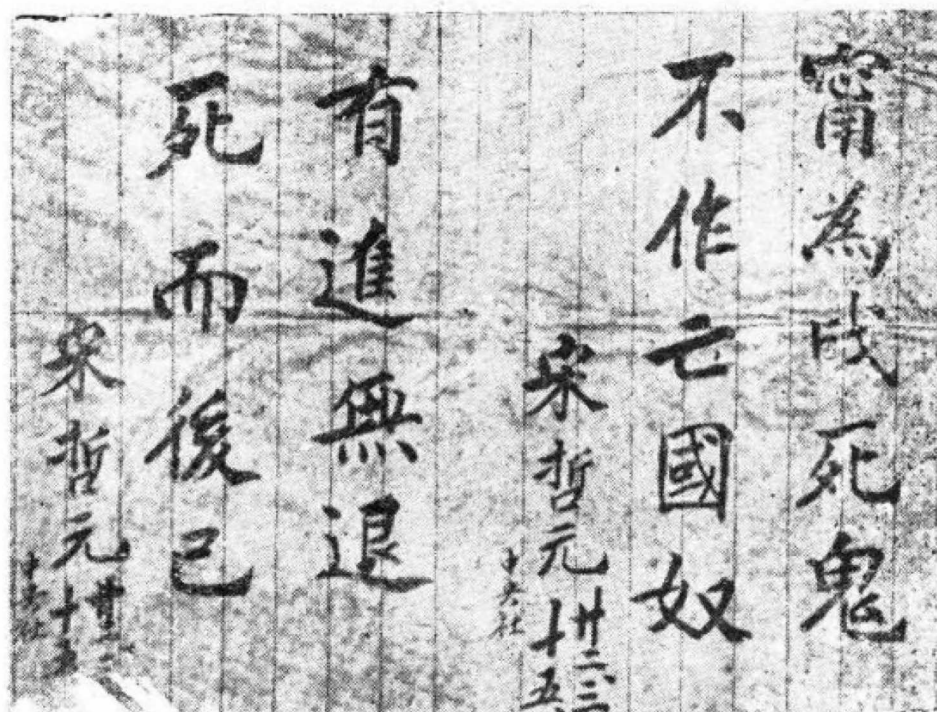 甯為战死鬼
不作亡國奴
宋哲元 廿二、三、十五、
中央社
有進無退
死而後已
宋哲元 廿二、三、十五
中央社